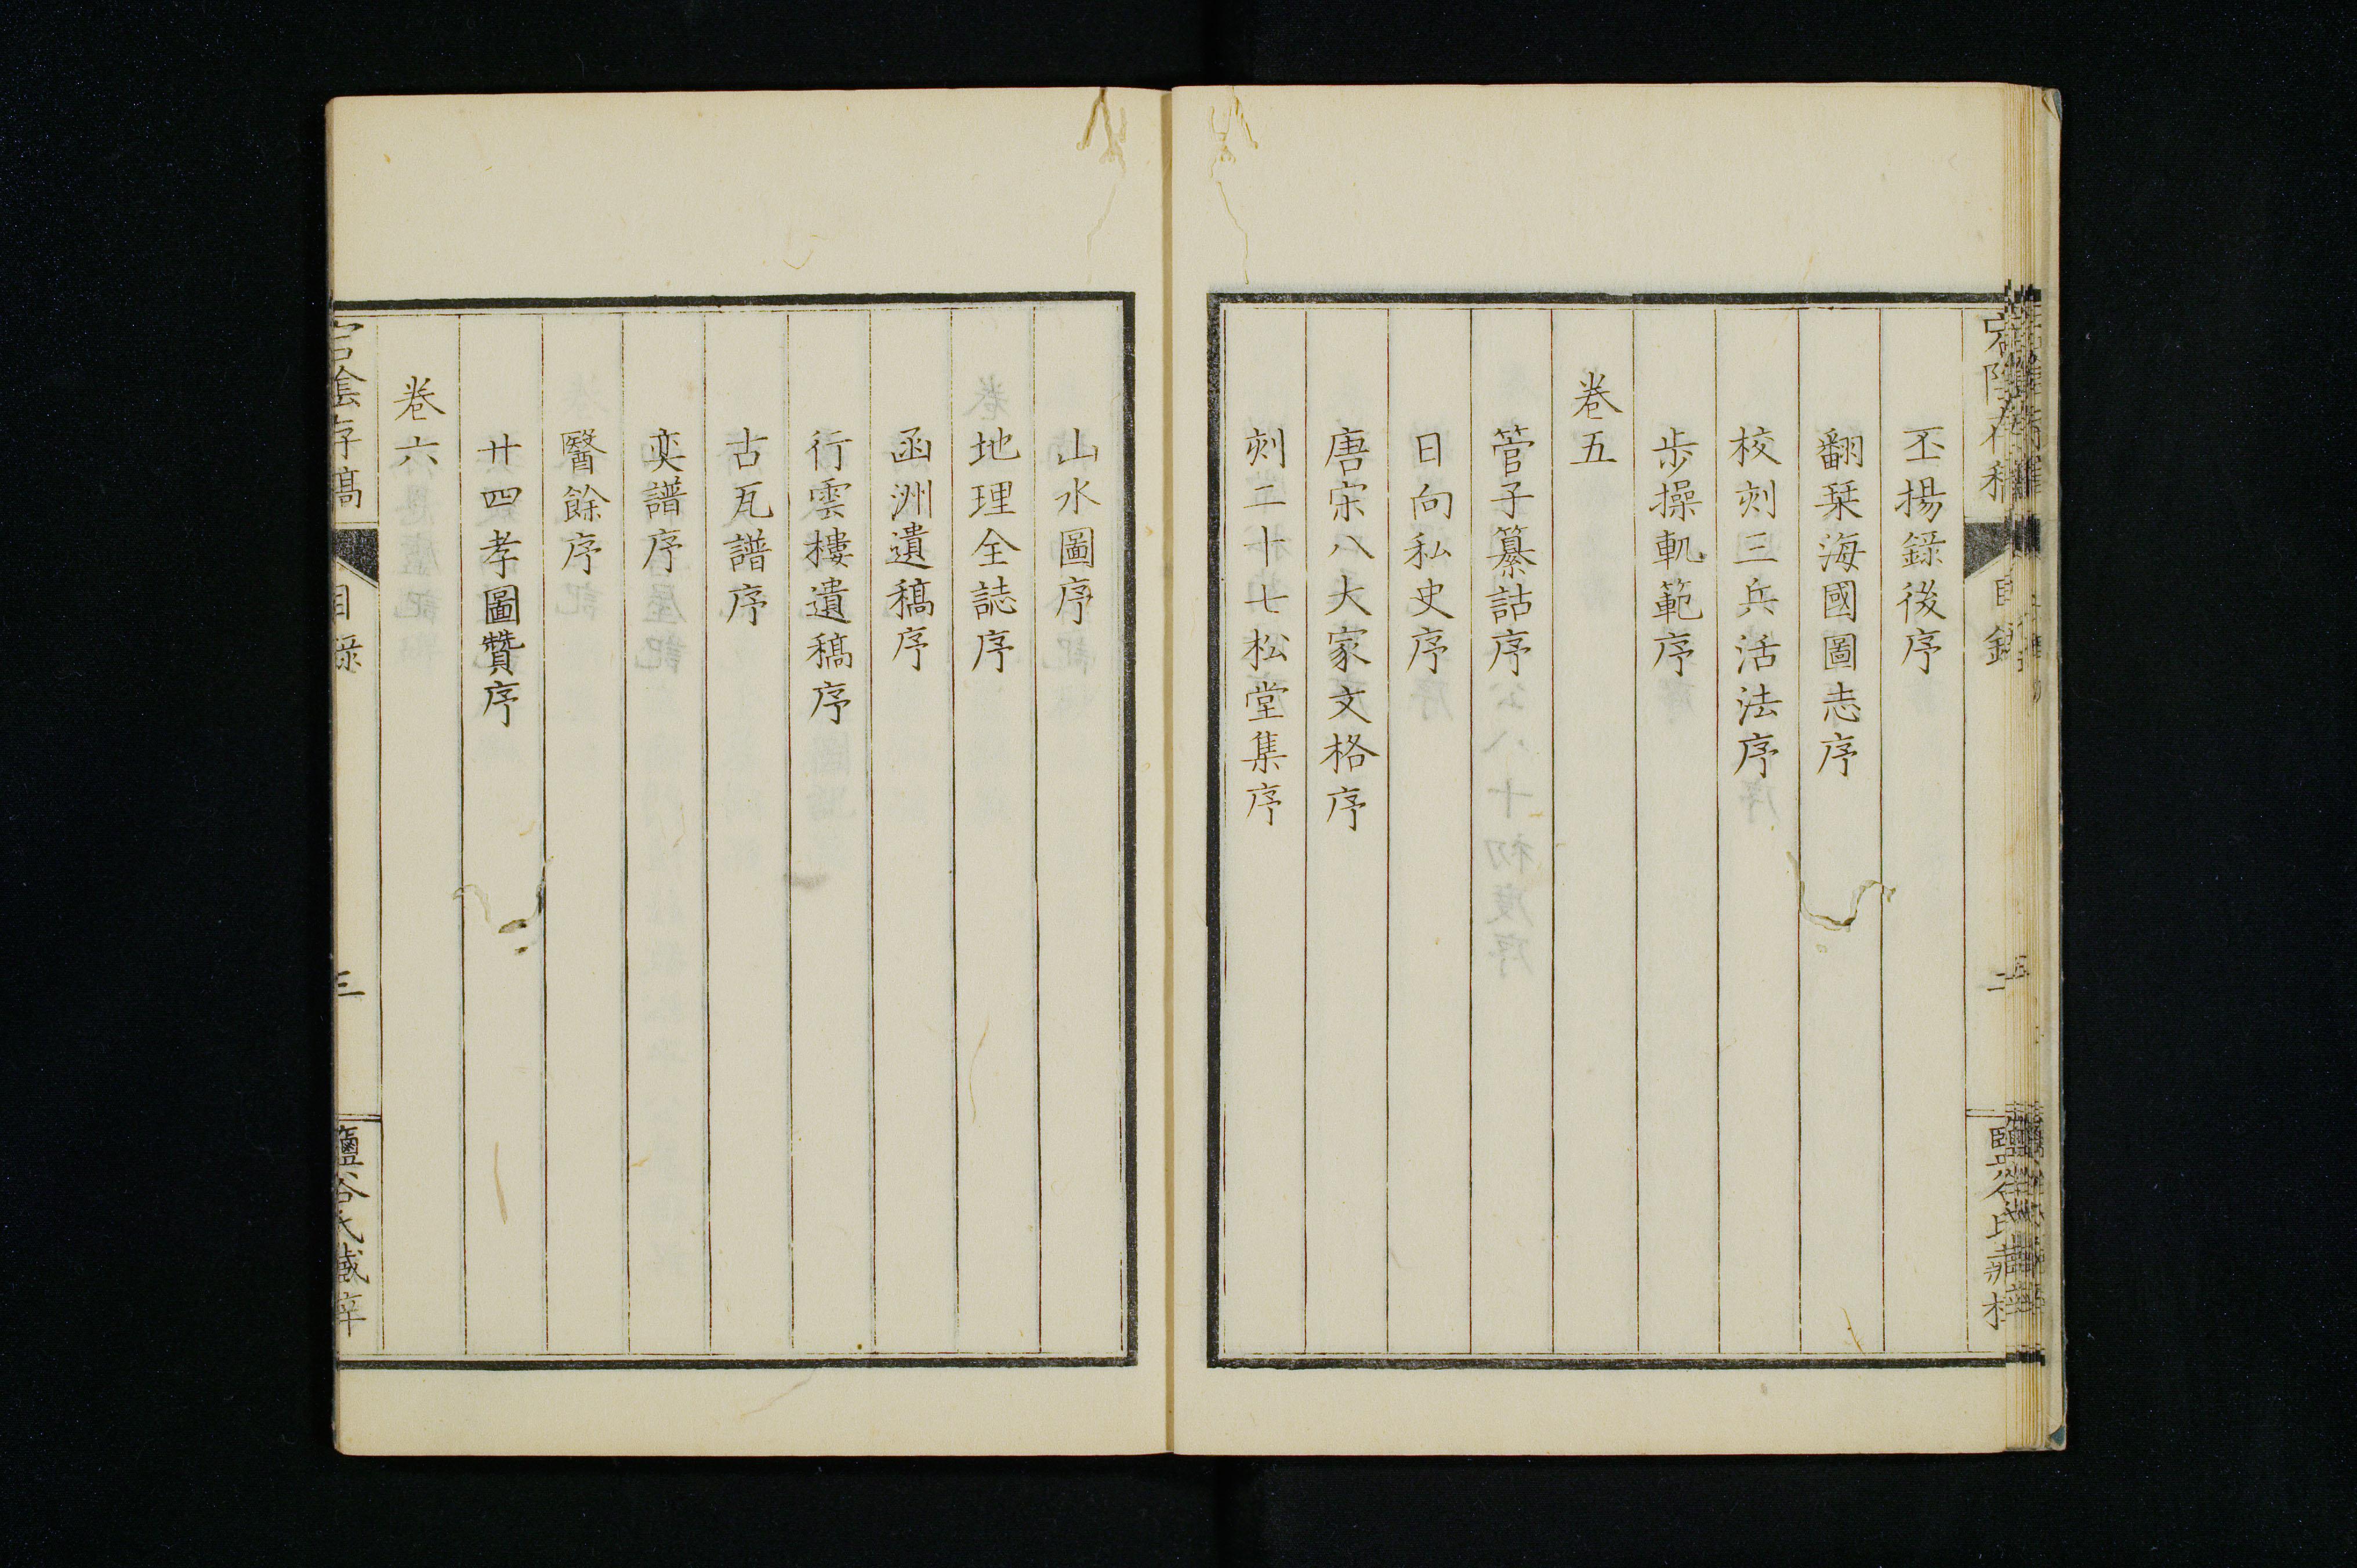 丕揚錄後序
翻栞海國圖志序
校刻三兵活法序
步操軌範序
卷五
管子纂詁序
日向私史序
唐宋八大家文格序
刻二十七松堂集序
山水圖序
地理全誌序
函洲遺稿序
行雲樓遺稿序
古瓦譜序
奕譜序
醫餘序
廿四孝圖贊序
卷六
宕陰存稿
目錄
三
鹽谷氏藏梓